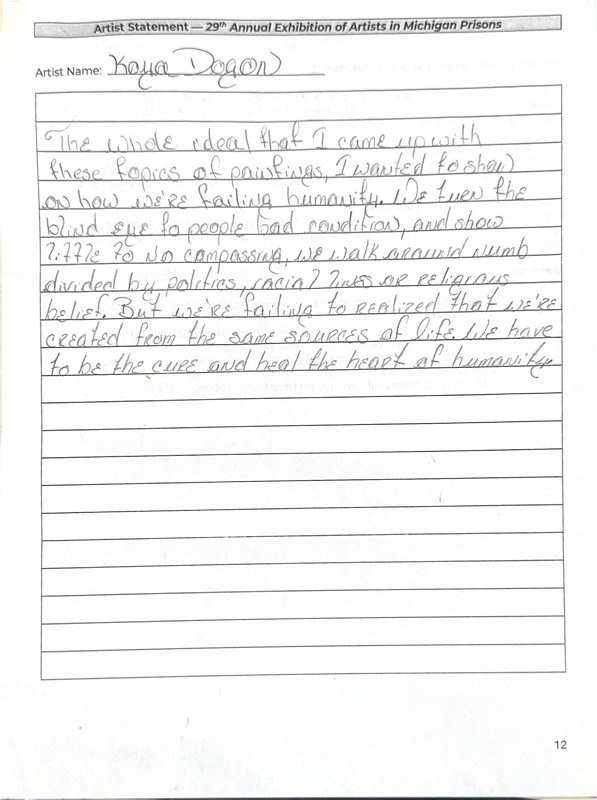 Artist Statement — 29th Annual Exhibition of Artists in Michigan Prisons
Artist Name: Kaya Dogon
The whole ideal that I came up with
these topics of paintings, I wanted to show
on how we're failing humanity. We turn the
blind eye to people bad condition, and show
little to no compassing, we walk around numb
divided by politics, racial lines or religious
belief. But we're failing to realized that we're
created from the same sources of life. We have
to be the cure and heal the heart of humanity
12